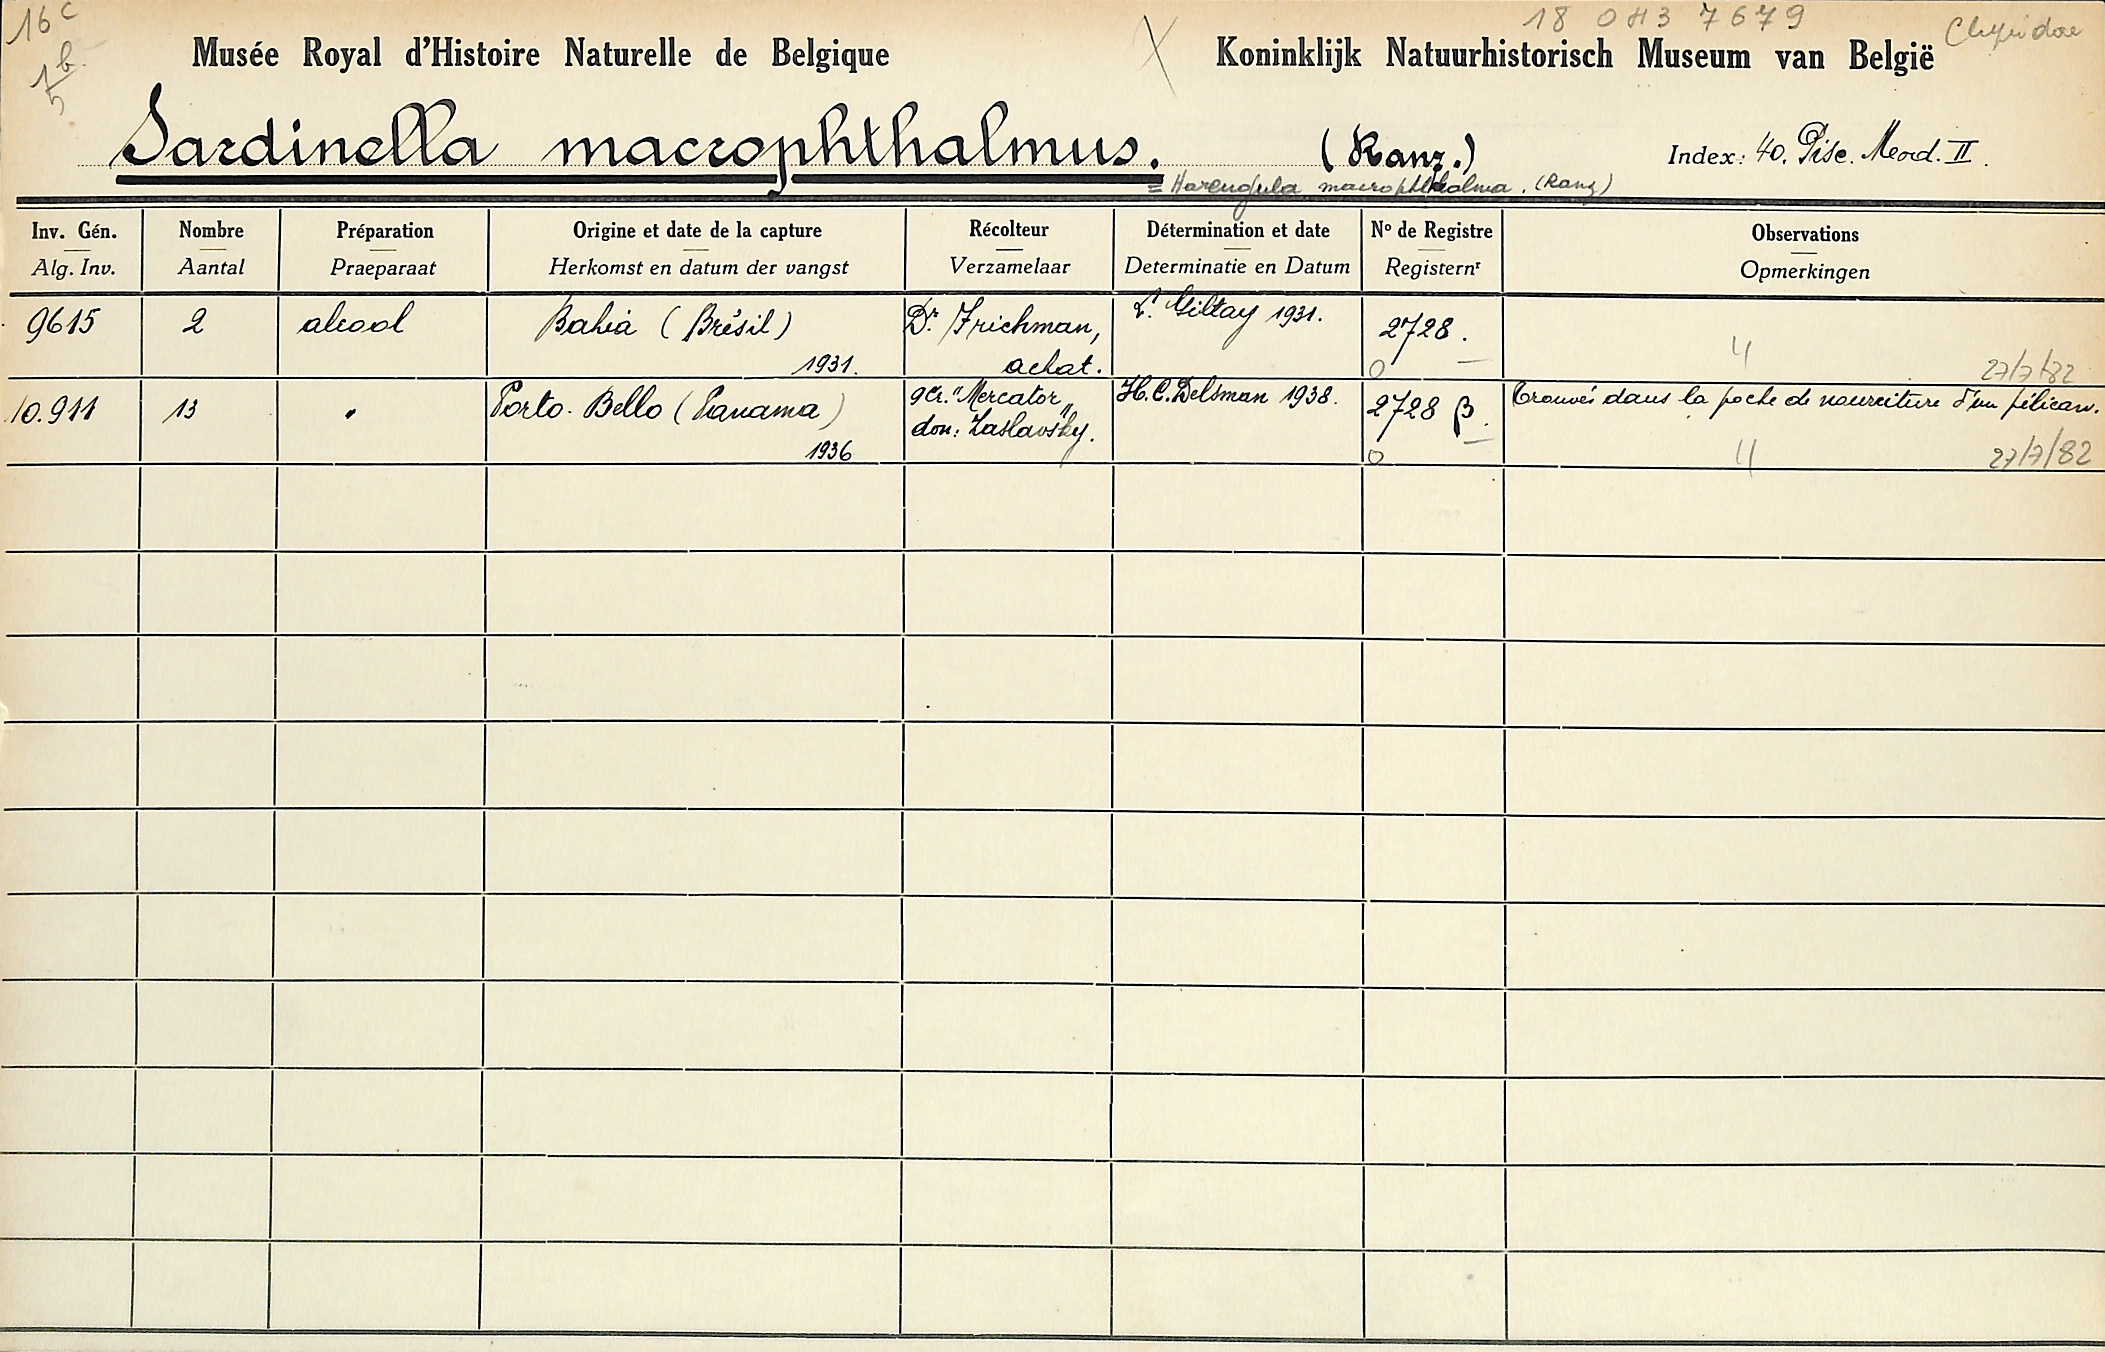 16 c
18 0H3 7679
Clupeidae
Musée Royal d'Histoire Naturelle de Belgique
Koninklijk Natuurhistorisch Museum van België
Sardinella macrophthalmus. (Ranz.)
Index: 40. Pisc. Merid. II.
= Harengula macrophthalma. (Ranz)
Inv. Gén. Nombre Préparation Origine et date de la capture Récolteur Détermination et date Nº de Registre Observations
Alg. Inv. Aantal Praeparaat Herkomst en datum der vangst Verzamelaar Determinatie en Datum Registernr Opmerkingen
9615 2 alcool Bahia (Brésil) Dr. Frichman, L. Giltay 1931. 2728.
1931. achat. 27/7/82
10.911 13 " Porto-Bello (Panama) "Mercator" H.C. Delsman 1938. 2728 β. Trouvés dans la poche de nourriture d'un pélican.
1936 don: Zaslavsky. 27/7/82